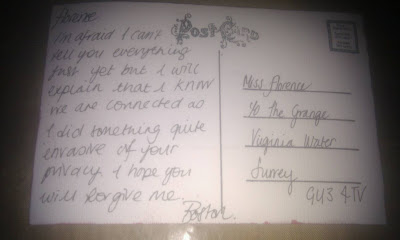 Florence
I'm afraid I can't
tell you everything
just yet but I will
explain that I know
we are connected as
I did something quite
invasive of your
privacy. I hope you
will forgive me.
Post Card
Miss Florence
c/o The Grange
Virginia Water
Surrey
GU3 4TV